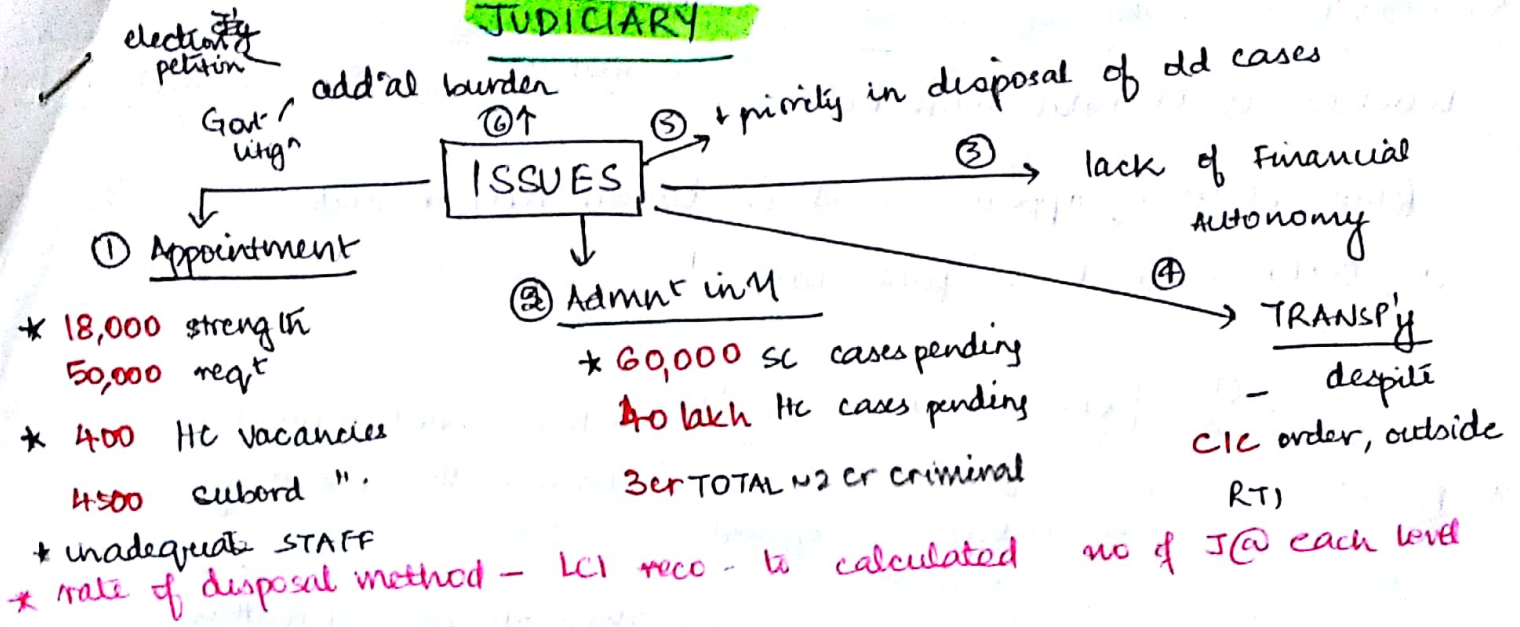 JUDICIARY
election
petition
add'al burden
Govt
litign
⑥↑
⑤ ↓ priority in disposal of old cases
ISSUES
③ lack of Financial
Autonomy
① Appointment
* 18,000 strength
50,000 reqt
* 400 HC vacancies
4500 subord ".
* inadequate STAFF
② Admnt in
* 60,000 SC cases pending
40 lakh HC cases pending
3cr TOTAL ~2 cr criminal
④ TRANSP'y
- despite
CIC order, outside
RTI
* rate of disposal method - LCI reco - to calculated no of J@ each level